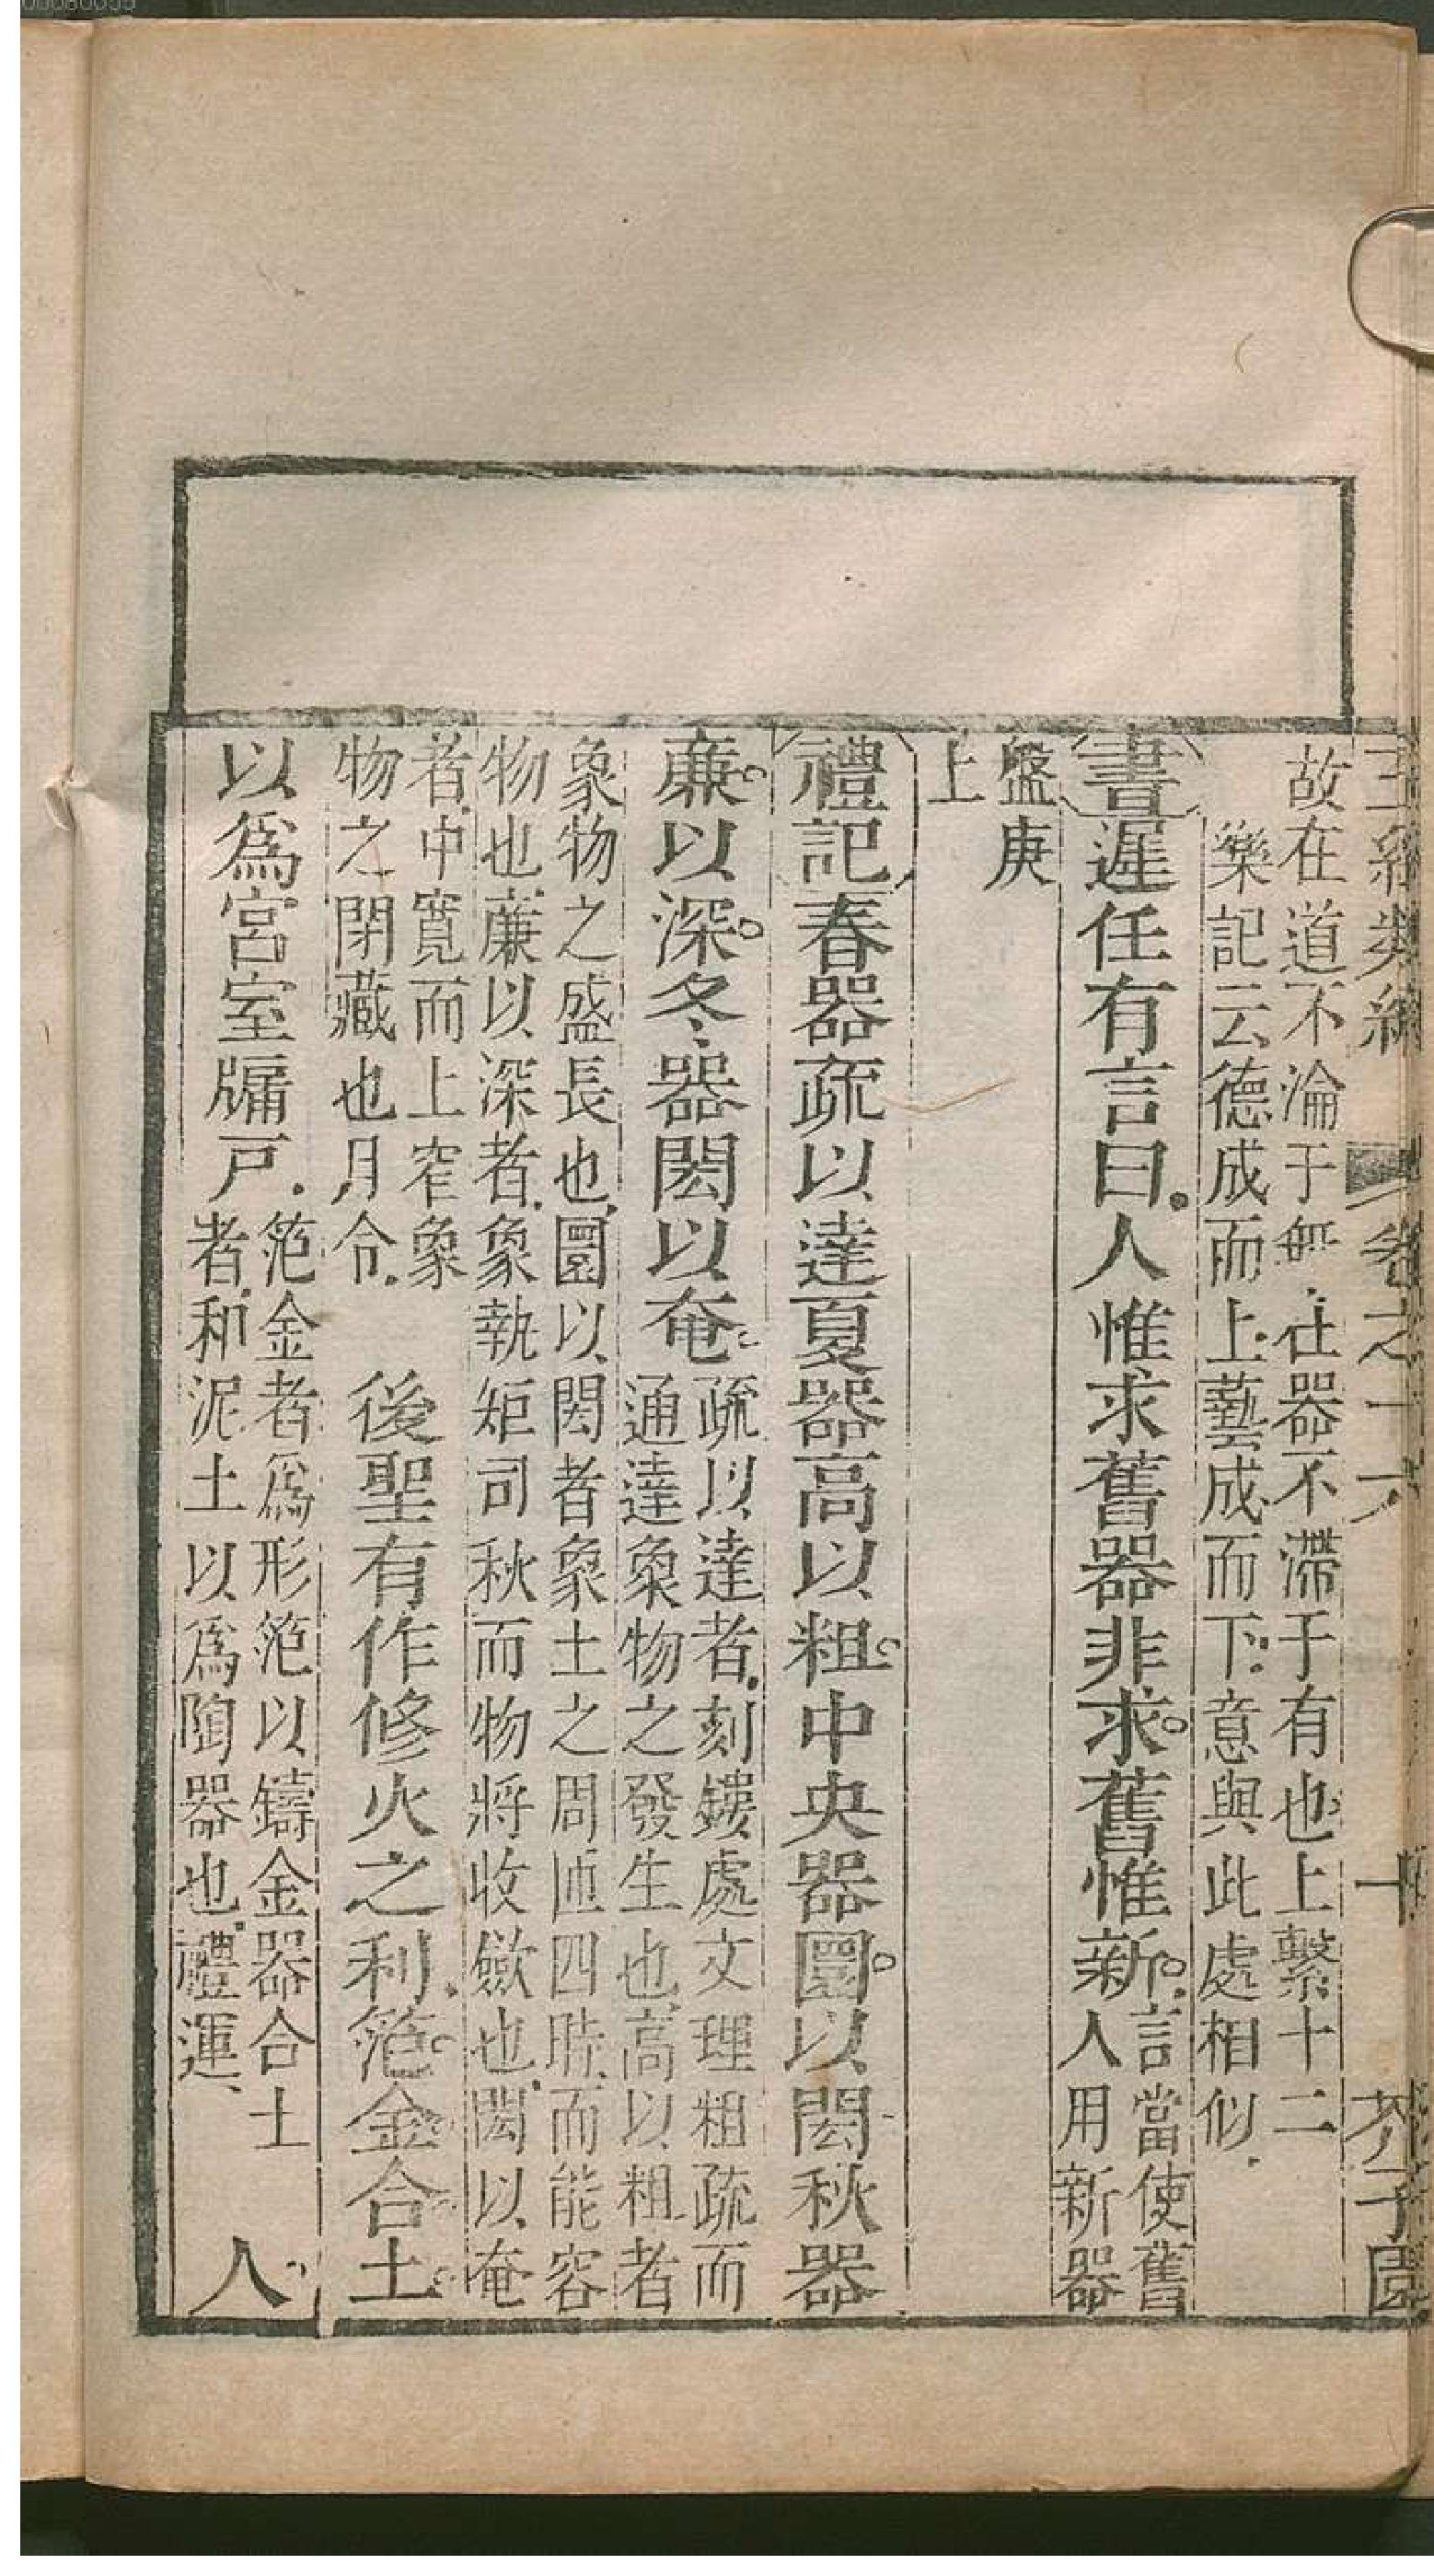 五經類編
卷之十六
十
芥子園
故在道不淪于無在器不滯于有也上繫十二
樂記云德成而上藝成而下意與此處相似
書遲任有言曰人惟求舊器非求舊惟新言當使舊
人用新器
盤庚
上
禮記春器疏以達夏器高以粗中央器圜以閎秋器
廉以深冬器閎以奄疏以達者刻鏤處文理粗疏而
通達象物之發生也高以粗者
象物之盛長也圜以閎者象土之周匝四時而能容
物也廉以深者象執矩司秋而物將收斂也閎以奄
者中寬而上窄象
物之閉藏也月令
後聖有作修火之利笵金合土
以爲宮室牖戸笵金者爲形笵以鑄金器合土
者和泥土以爲陶器也禮運
人